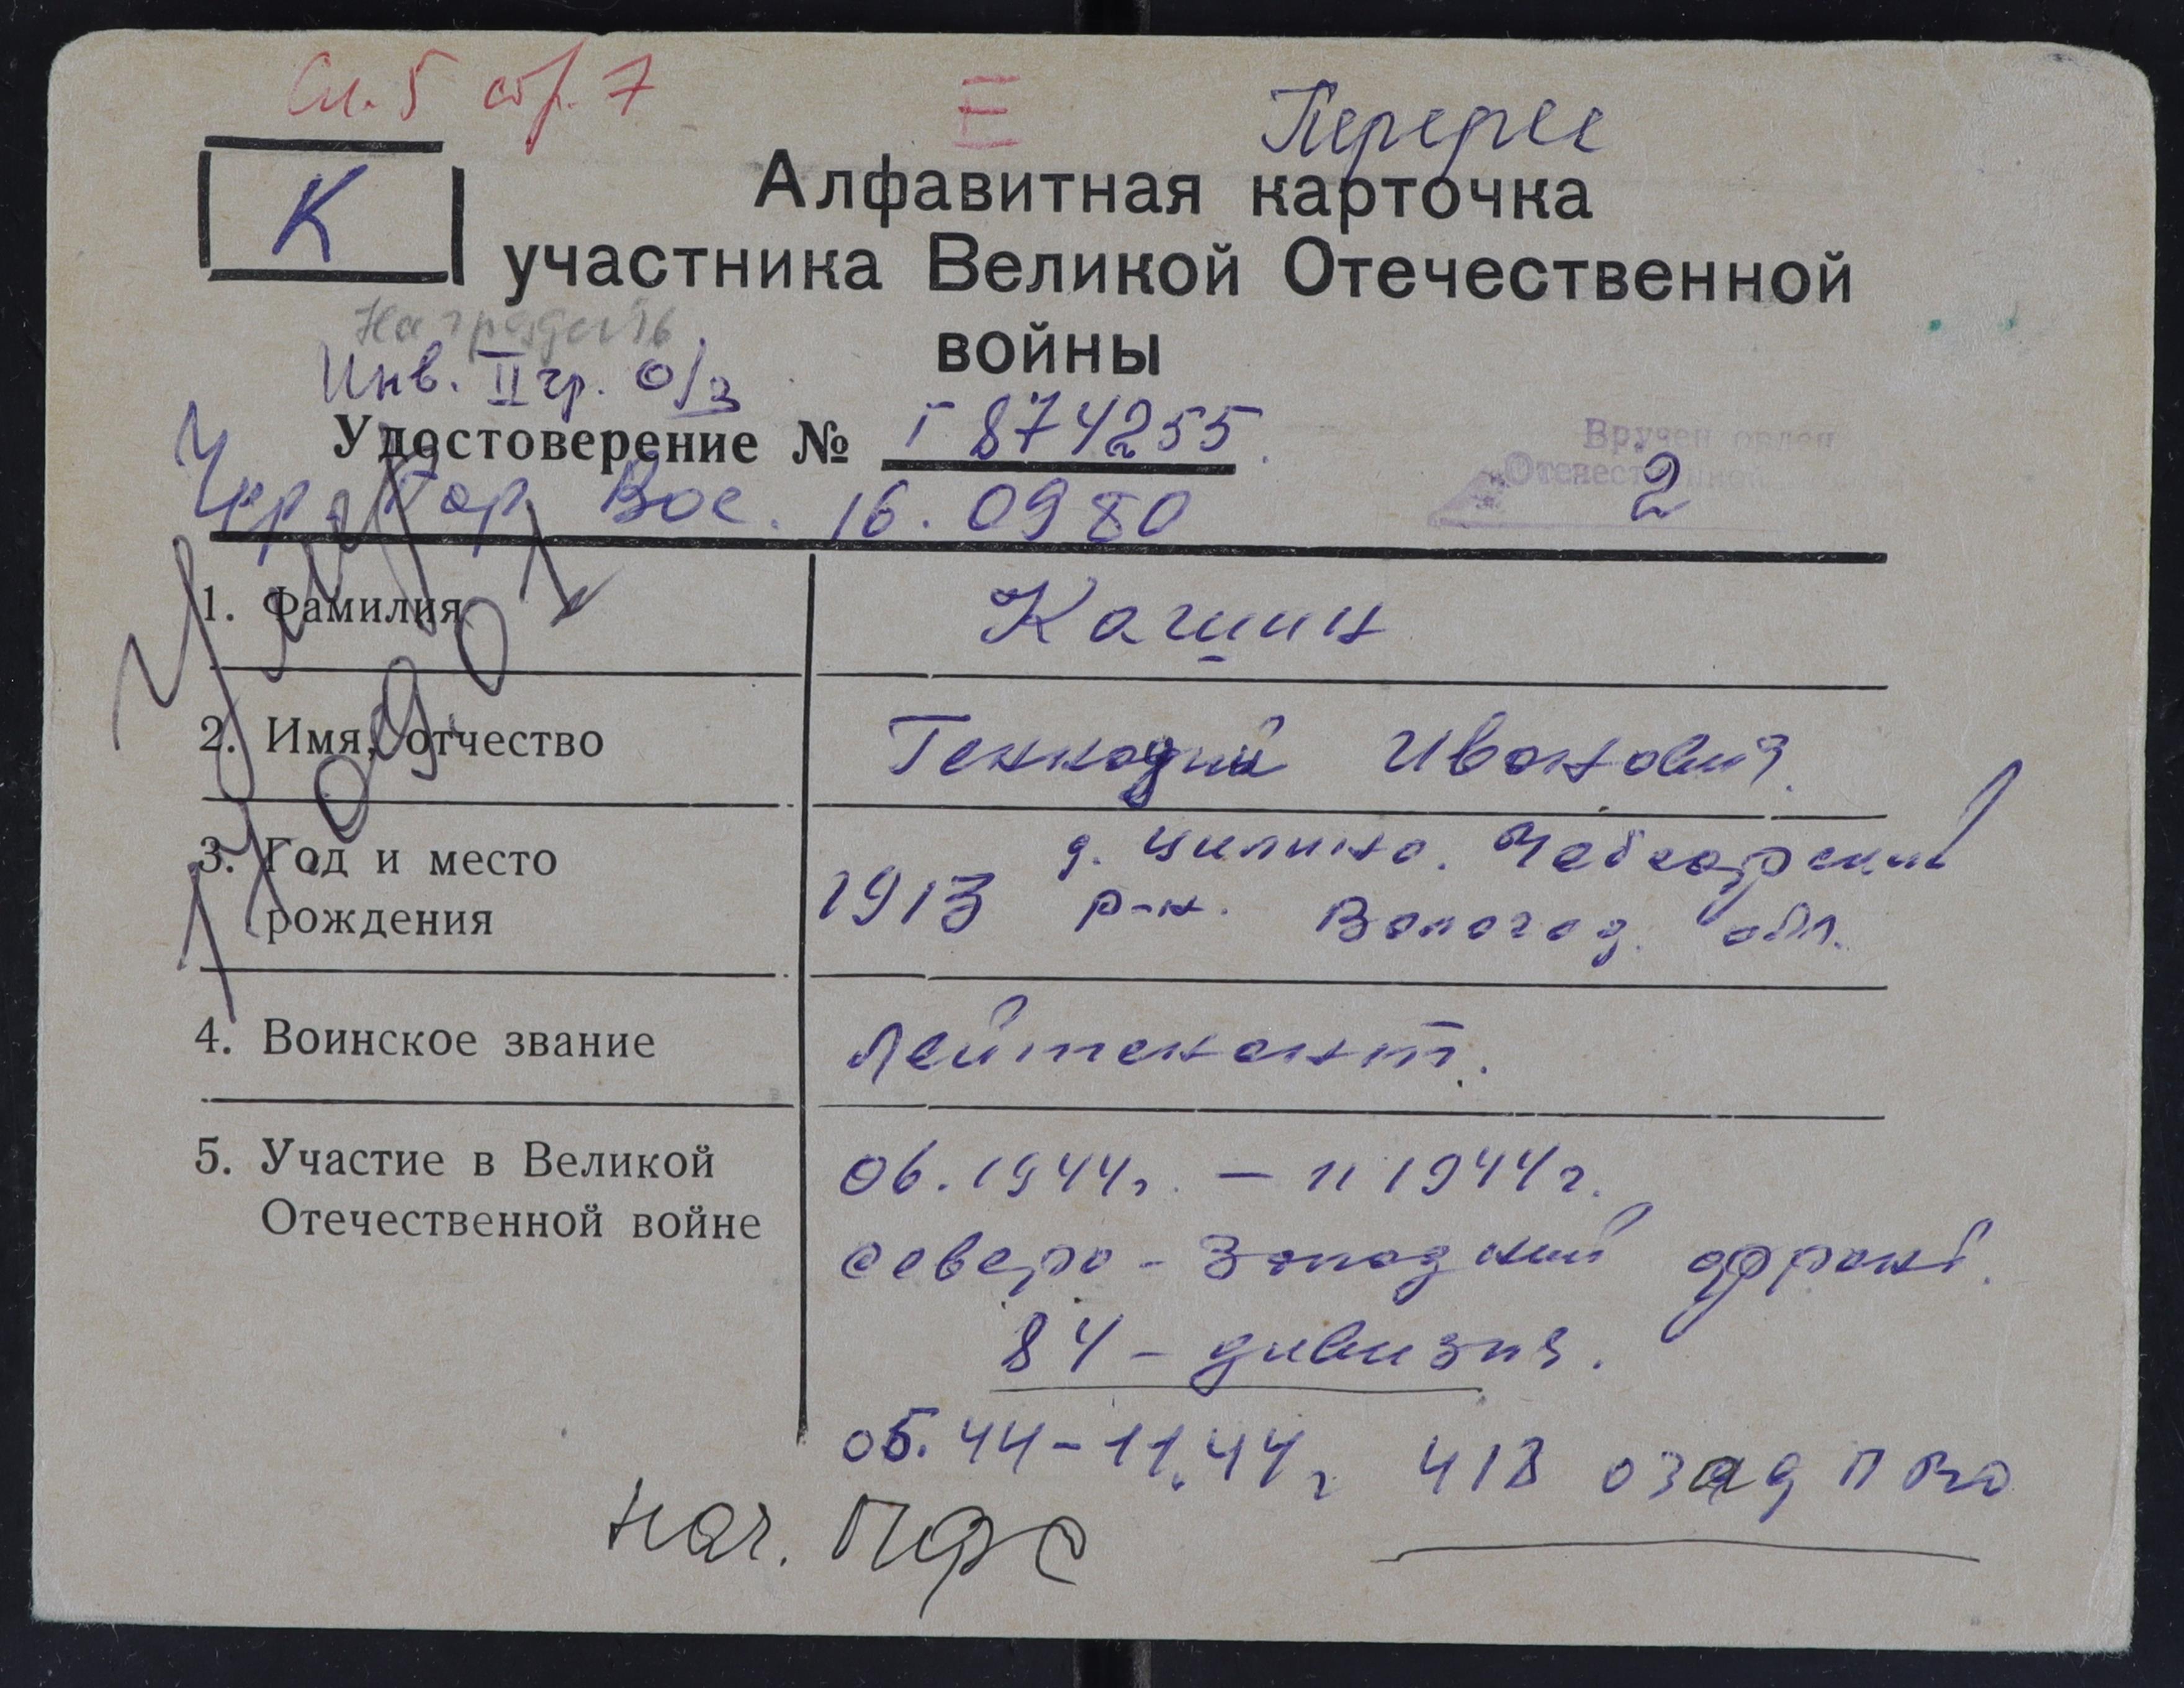 Сп. 5 стр. 7
Е
Перерег
К
Алфавитная карточка
участника Великой Отечественной
войны
Наградить
Инв. II гр. о/з
Удостоверение № Г 874255.
Вручен орден
Отечественной
2
Гор. Вое. 16.09 80
Умер
1. Фамилия
Кашин
2. Имя, отчество
Геннадий Иванович.
3. Год и место
рождения
1913 д. Чебсарский
р-н. Вологод. обл.
4. Воинское звание
Лейтенант.
5. Участие в Великой
Отечественной войне
06.1944г. – 11 1944г.
Северо-Западный фронт.
84 – дивизия.
05.44-11.44г 418 озад ПВО
нач. ПФС